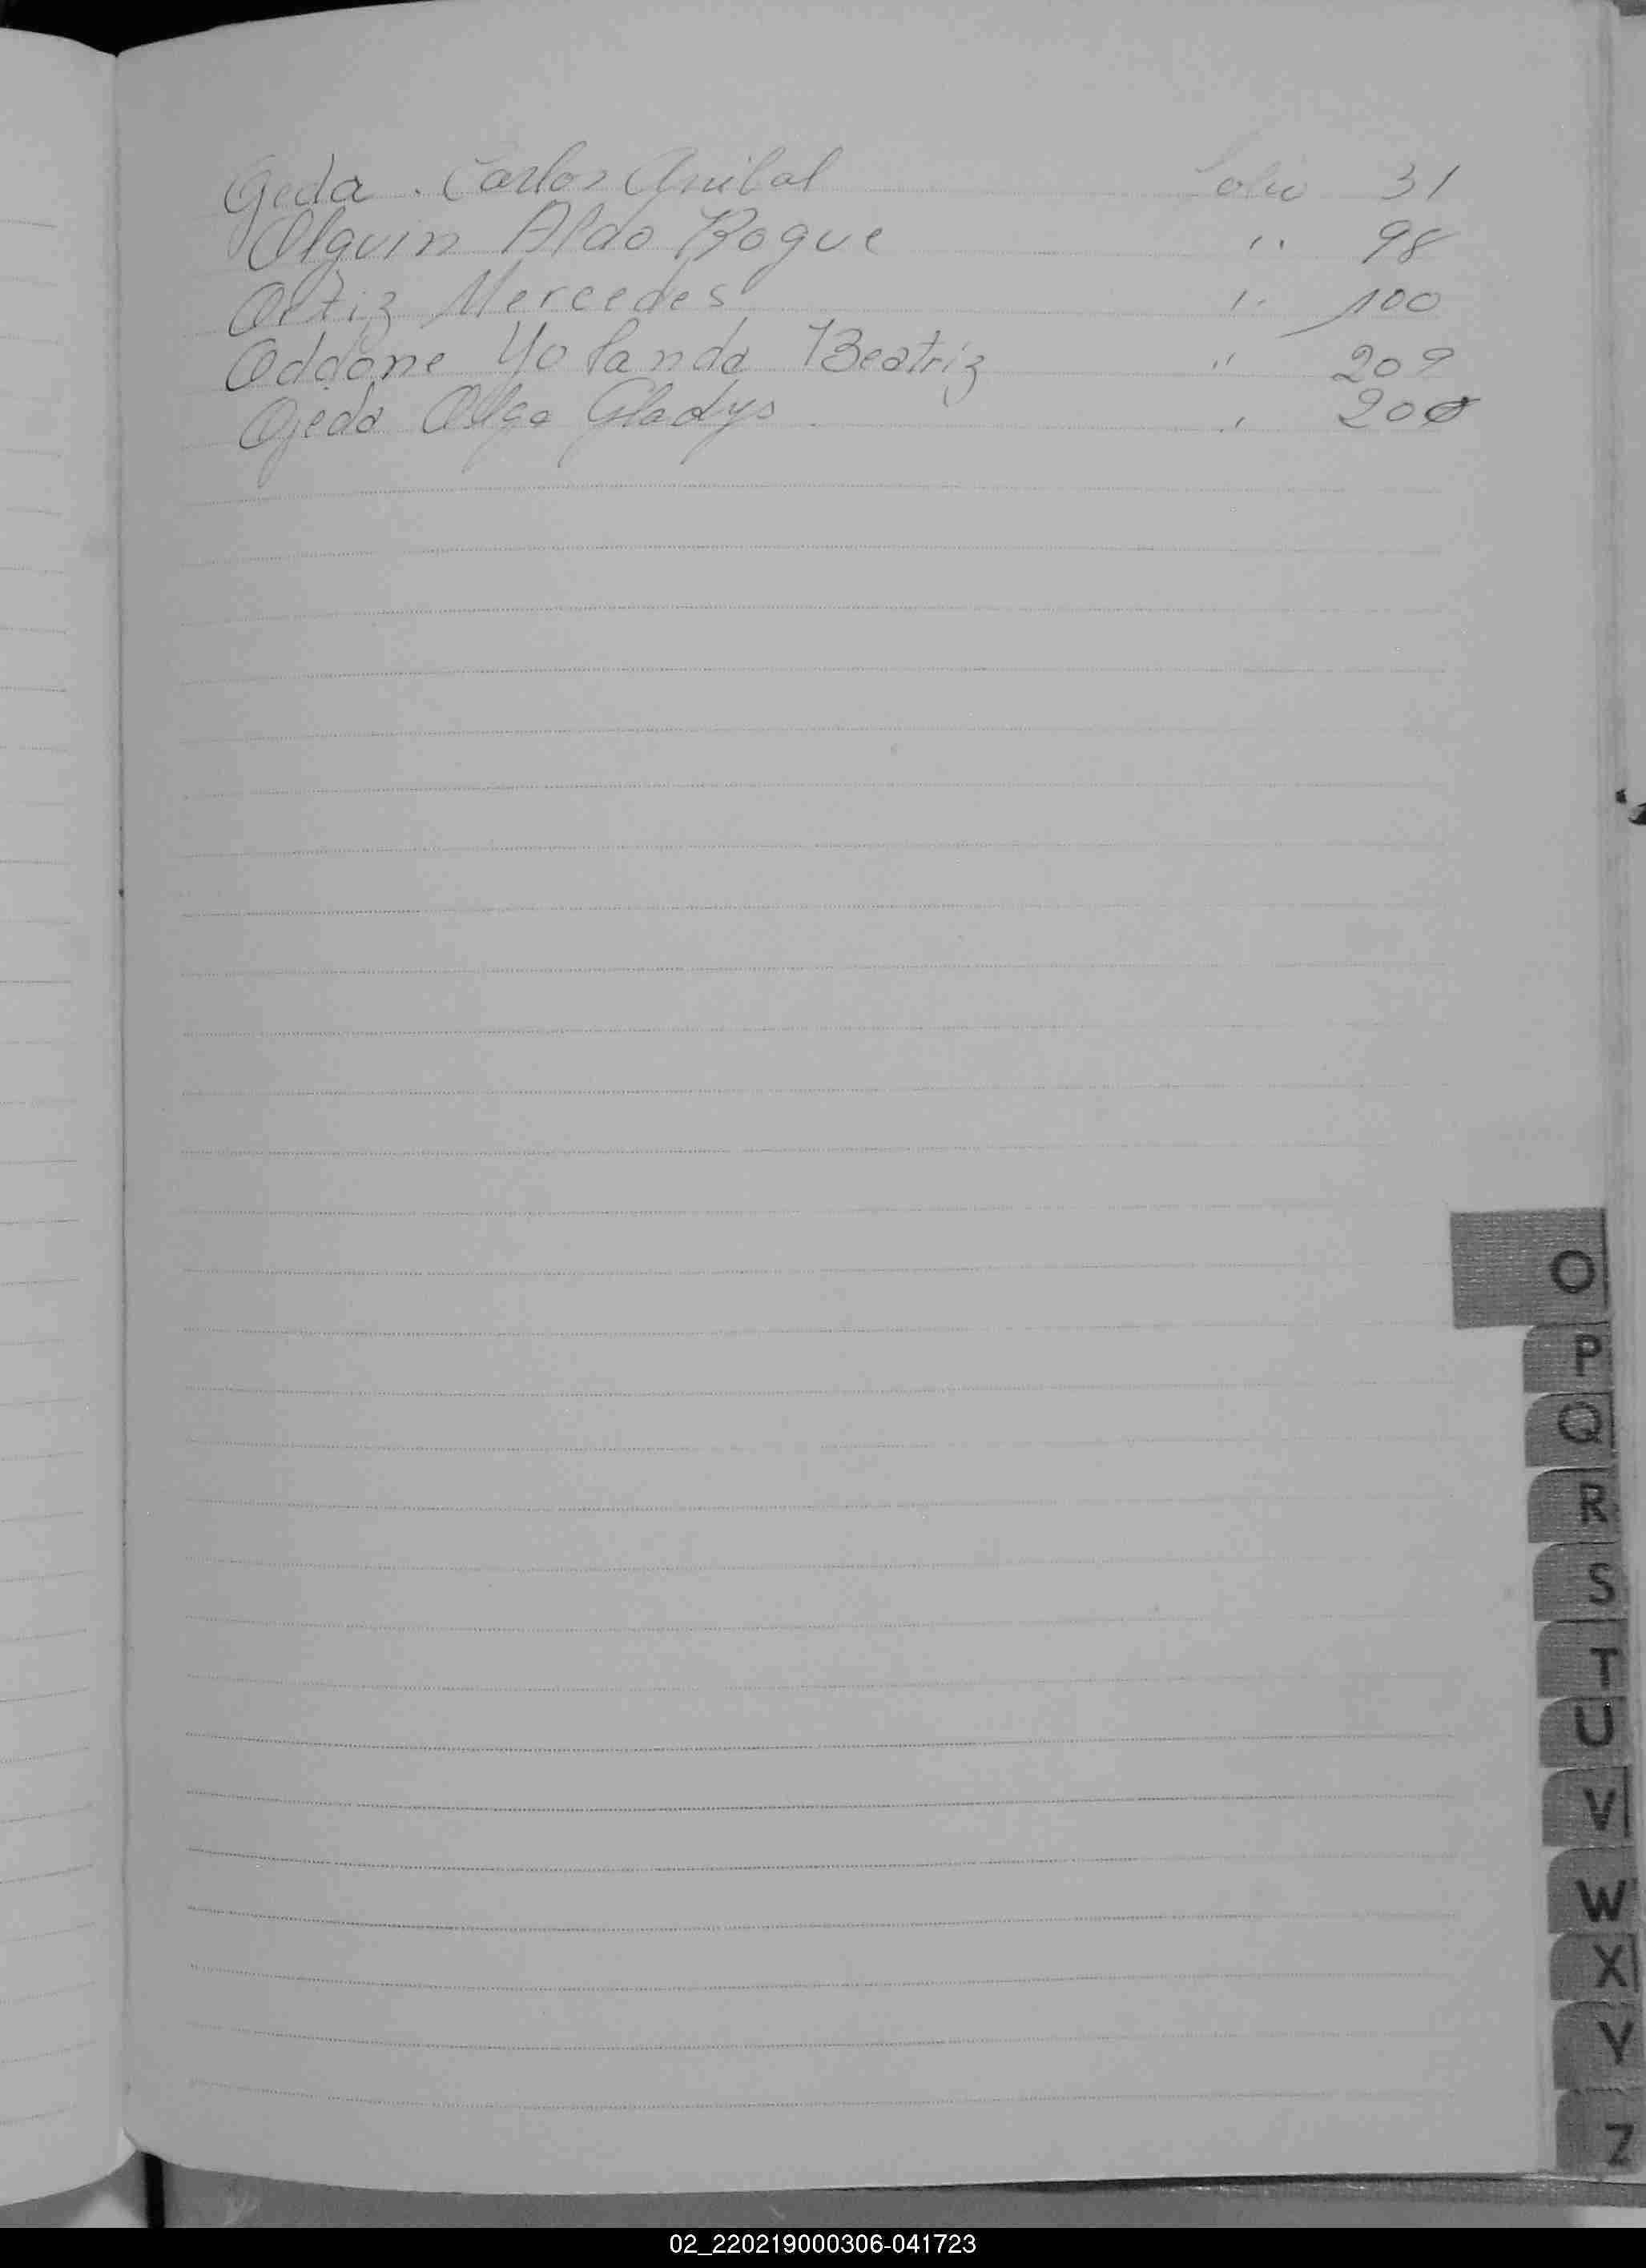 Ojeda. Carlos Anibal Folio 31
Olguin Aldo Roque " 98
Ortiz Mercedes " 100
Oddone Yolanda Beatriz " 209
Ojeda Olga Gladys "
O
P
Q
R
S
T
U
V
W
X
Y
Z
02_220219000306-041723